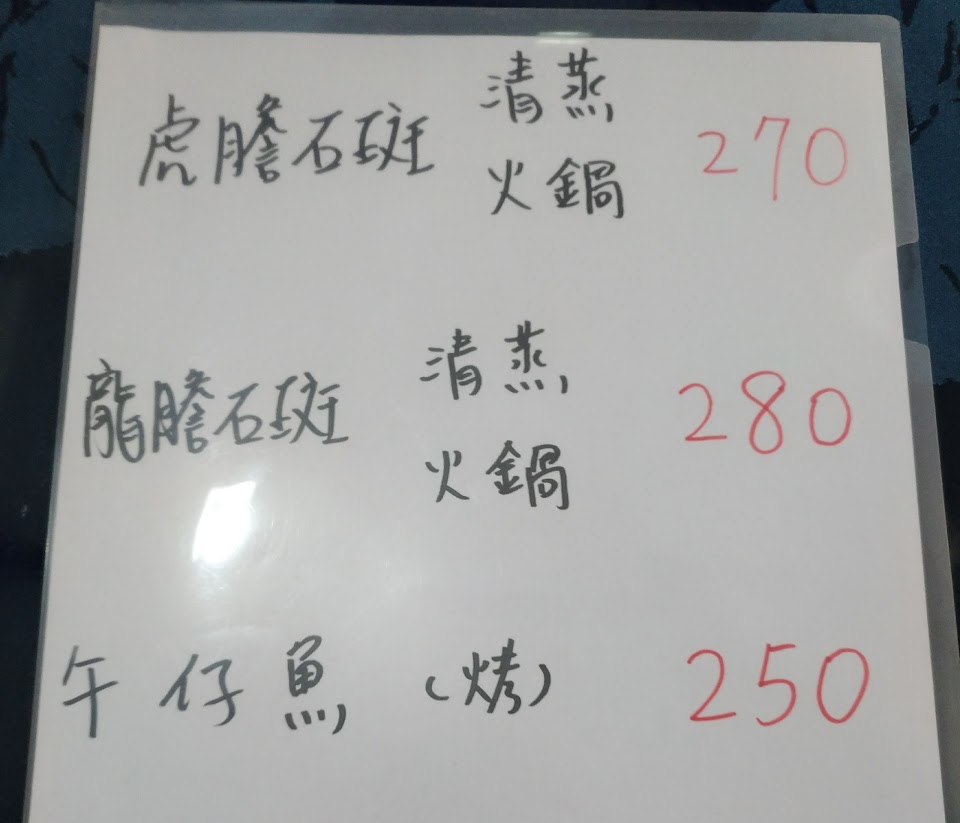 虎膽石斑 清蒸 火鍋 270
龍膽石斑 清蒸 火鍋 280
午仔魚 (烤) 250